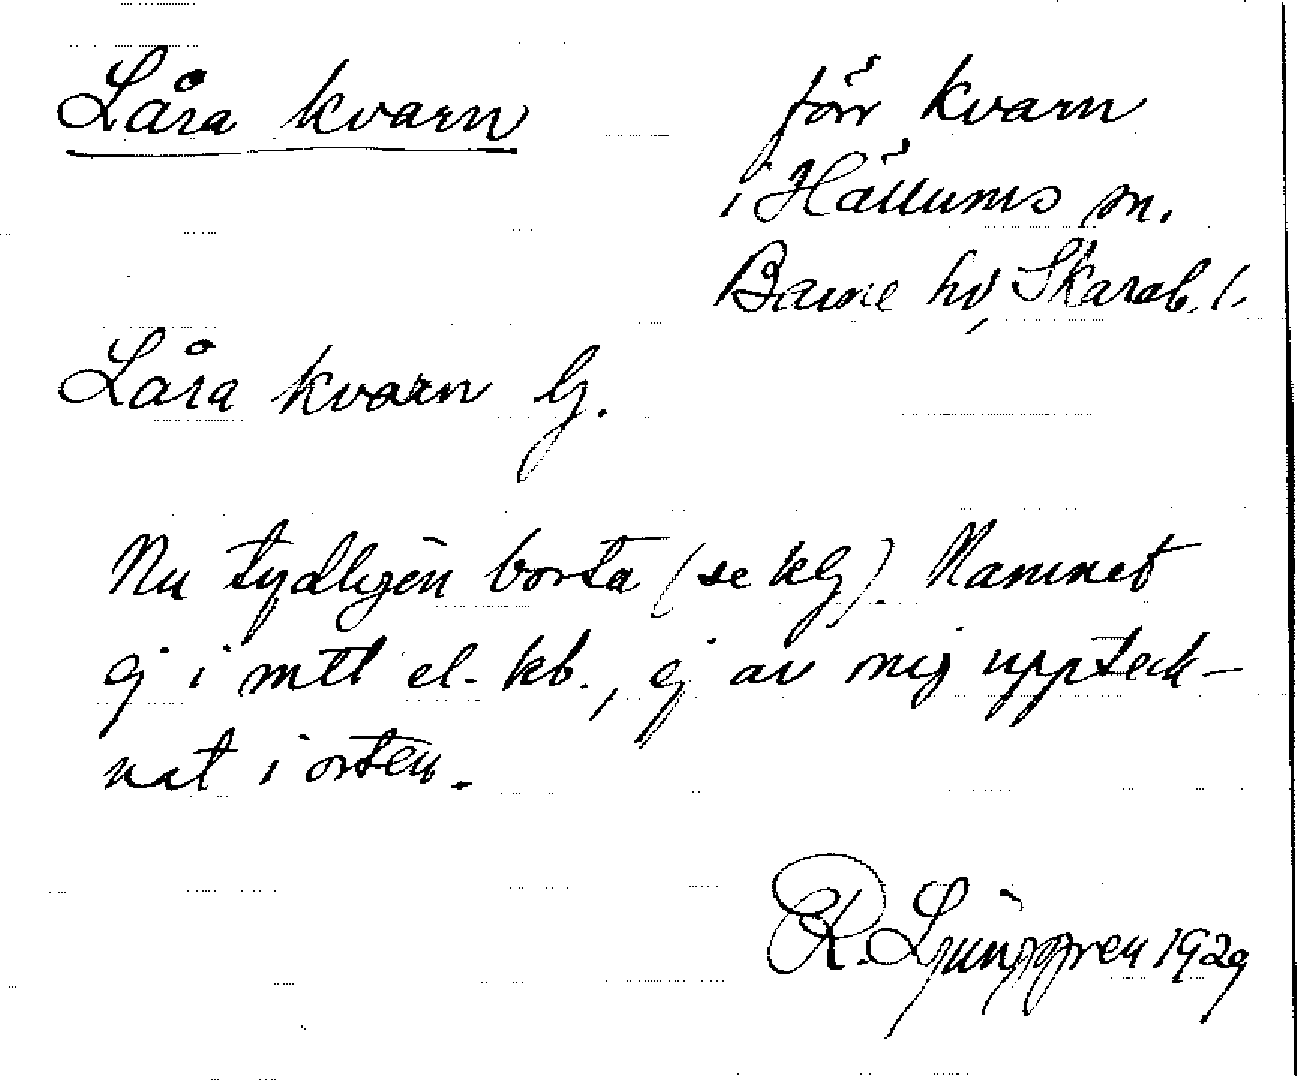 Låra kvarn
förr kvarn
i Hällums sn.
Barne hd, Skarab. l.
Låra kvarn G.
Nu tydligen borta (se kG). Namnet
ej i mtl el. kb., ej av mig uppteck-
nat i orten.
R. Ljunggren 1929